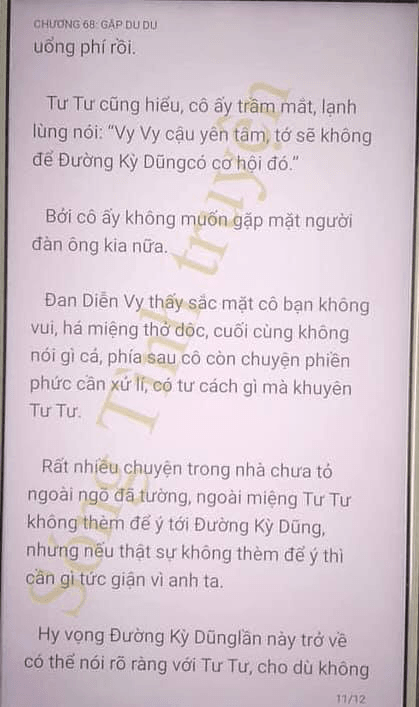 CHƯƠNG 68: GẶP DU DU
uổng phí rồi.
Tư Tư cũng hiểu, cô ấy trầm mắt, lạnh
lùng nói: “Vy Vy cậu yên tâm, tớ sẽ không
để Đường Kỳ Dũngcó cơ hội đó.”
Bởi cô ấy không muốn gặp mặt người
đàn ông kia nữa.
Đan Diễn Vy thấy sắc mặt cô bạn không
vui, há miệng thở dốc, cuối cùng không
nói gì cả, phía sau cô còn chuyện phiền
phức cần xử lí, có tư cách gì mà khuyên
Tư Tư.
Rất nhiều chuyện trong nhà chưa tỏ
ngoài ngõ đã tường, ngoài miệng Tư Tư
không thèm để ý tới Đường Kỳ Dũng,
nhưng nếu thật sự không thèm để ý thì
cần gì tức giận vì anh ta.
Hy vọng Đường Kỳ Dũnglần này trở về
có thể nói rõ ràng với Tư Tư, cho dù không
11/12
Sóng Tình truyện